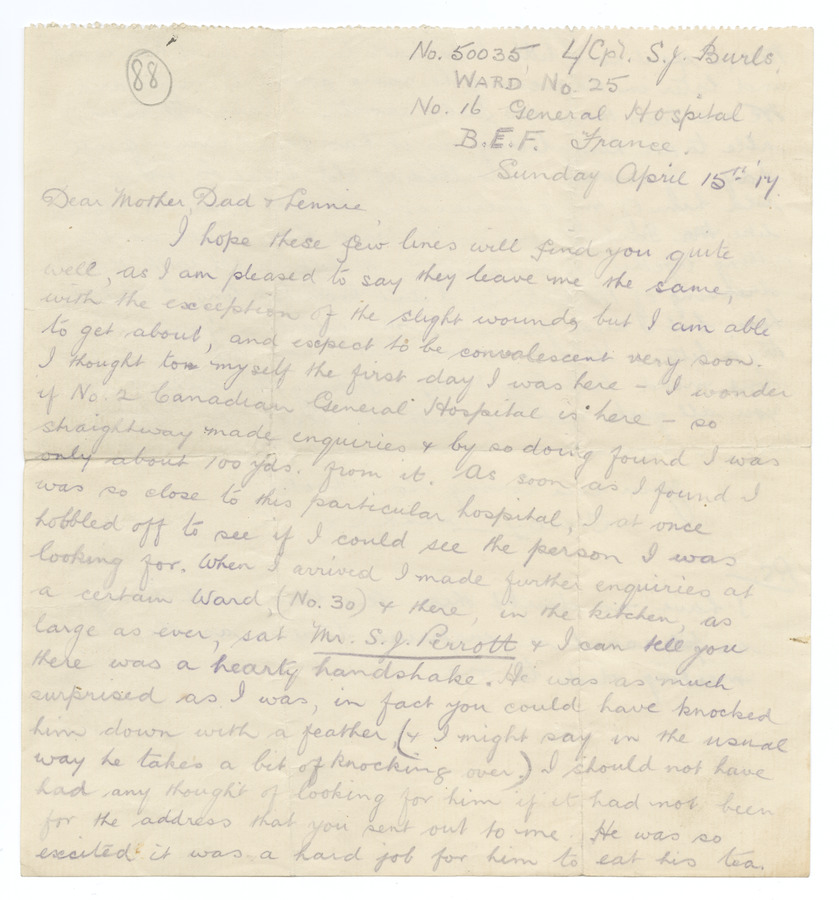 88
No. 50035 L/Cpl. S.J. Burls.
WARD No. 25
No. 16 General Hospital
B.E.F. France.
Sunday April 15th '17.
Dear Mother, Dad & Lennie
I hope these few lines will find you quite
well, as I am pleased to say they leave me the same,
with the exception of the slight wounds but I am able
to get about, and expect to be convalescent very soon.
I thought to myself the first day I was here – I wonder
if No. 2 Canadian General Hospital is here – so
straightway made enquiries & by so doing found I was
only about 100 yds. from it. As soon as I found I
was so close to this particular hospital, I at once
hobbled off to see if I could see the person I was
looking for. When I arrived I made further enquiries at
a certain Ward, (No. 30) & there, in the kitchen, as
large as ever, sat Mr. S.J. Perrott & I can tell you
there was a hearty handshake. He was as much
surprised as I was, in fact you could have knocked
him down with a feather, (& I might say in the usual
way he takes a bit of knocking over.) I should not have
had any thought of looking for him if it had not been
for the address that you sent out to me. He was so
excited it was a hard job for him to eat his tea.